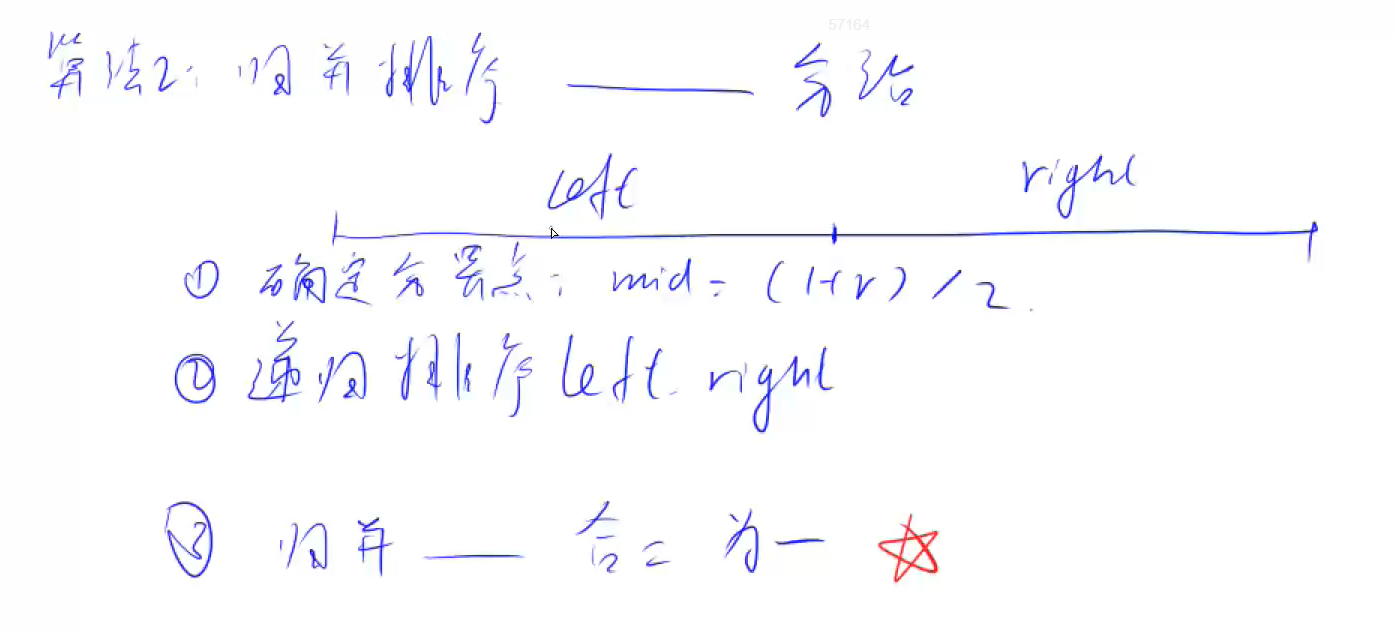 57164
算法2：归并排序 —— 分治
left right
① 确定分界点：mid = (l+r)/2.
② 递归排序 left. right
③ 归并 —— 合二为一